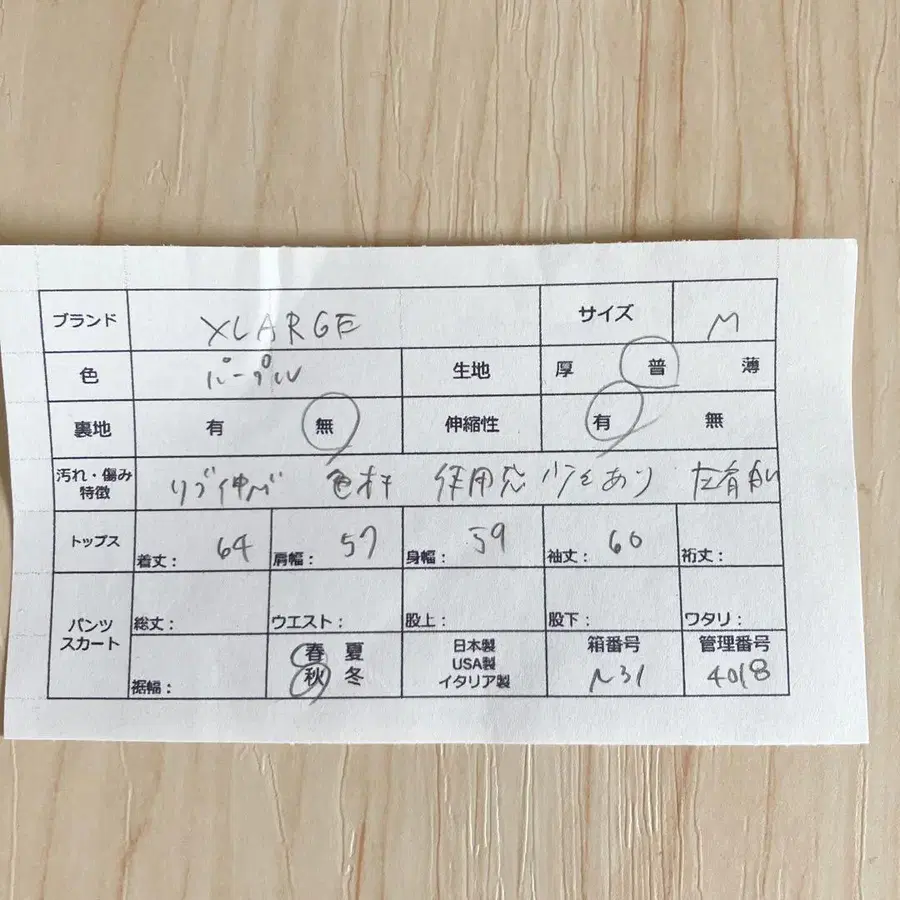 ブランド XLARGE サイズ M
色 パープル 生地 厚 普 薄
裏地 有 無 伸縮性 有 無
汚れ・傷み リブ伸び 色 使用感 少々あり
特徴
トップス 着丈: 64 肩幅: 57 身幅: 59 袖丈: 60 裄丈:
パンツ 総丈: ウエスト: 股上: 股下: ワタリ:
スカート
裾幅: 春 夏 日本製 箱番号 管理番号
秋 冬 USA製 N31 4018
イタリア製